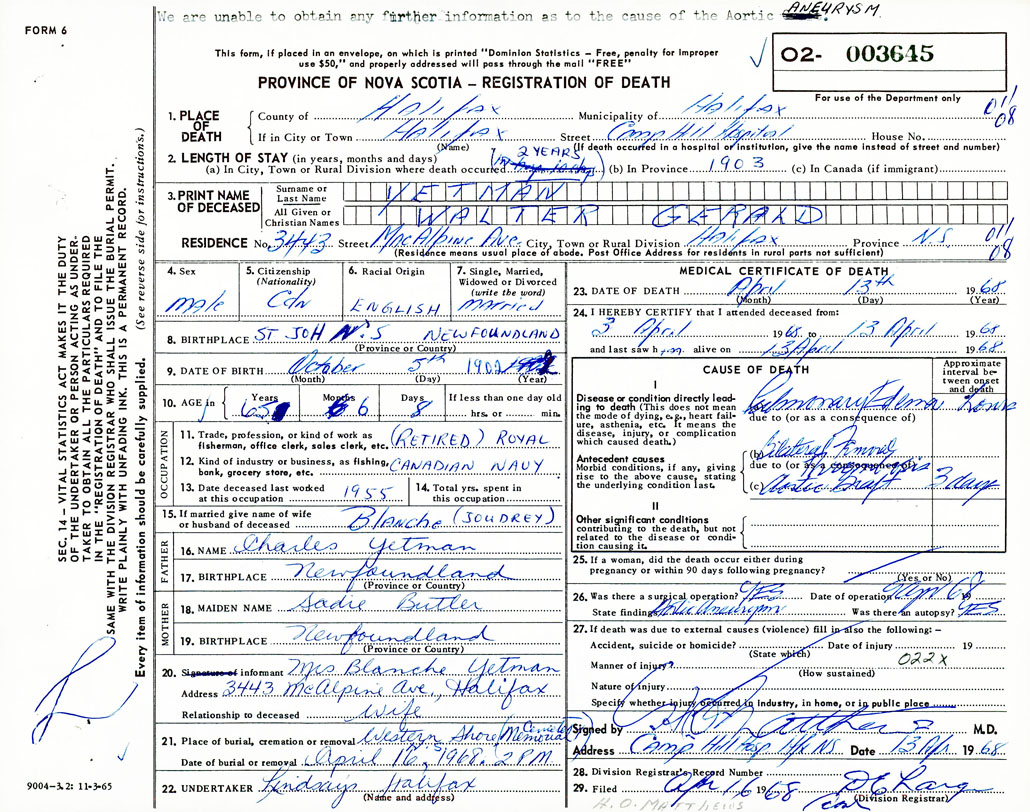 We are unable to obtain any further information as to the cause of the Aortic ANEURYSM.
FORM 6
This form, if placed in an envelope, on which is printed "Dominion Statistics – Free, penalty for improper
use $50," and properly addressed will pass through the mail "FREE"
O2- 003645
PROVINCE OF NOVA SCOTIA – REGISTRATION OF DEATH
For use of the Department only
011
08
1. PLACE OF DEATH
County of Halifax Municipality of Halifax
If in City or Town Halifax Street Camp Hill Hospital House No.
(Name) (If death occurred in a hospital or institution, give the name instead of street and number)
2. LENGTH OF STAY (in years, months and days) 2 YEARS
(a) In City, Town or Rural Division where death occurred (b) In Province 1903 (c) In Canada (if immigrant)
3. PRINT NAME OF DECEASED
Surname or Last Name YETMAN
All Given or Christian Names WALTER GERALD
RESIDENCE No. 3443 Street MacAlpine Ave. City, Town or Rural Division Halifax Province N.S.
011
08
(Residence means usual place of abode. Post Office Address for residents in rural parts not sufficient)
4. Sex male
5. Citizenship (Nationality) Cdn
6. Racial Origin ENGLISH
7. Single, Married, Widowed or Divorced (write the word) married
8. BIRTHPLACE ST JOHN'S NEWFOUNDLAND
(Province or Country)
9. DATE OF BIRTH October 5th 1902
(Month) (Day) (Year)
10. AGE in Years 65 Months 6 Days 8 If less than one day old
hrs. or min.
OCCUPATION
11. Trade, profession, or kind of work as fisherman, office clerk, sales clerk, etc. (RETIRED) ROYAL
12. Kind of industry or business, as fishing, bank, grocery store, etc. CANADIAN NAVY
13. Date deceased last worked at this occupation 1955
14. Total yrs. spent in this occupation
15. If married give name of wife or husband of deceased Blanche (JOUDREY)
FATHER
16. NAME Charles Yetman
17. BIRTHPLACE Newfoundland
(Province or Country)
MOTHER
18. MAIDEN NAME Sadie Butler
19. BIRTHPLACE Newfoundland
(Province or Country)
20. Signature of informant Mrs Blanche Yetman
Address 3443 McAlpine Ave., Halifax
Relationship to deceased Wife
21. Place of burial, cremation or removal Western Shore (Memorial Cemetery)
Date of burial or removal April 16, 1968. 2 P.M.
22. UNDERTAKER Lindsay's Halifax
(Name and address)
MEDICAL CERTIFICATE OF DEATH
23. DATE OF DEATH April 13th 1968
(Month) (Day) (Year)
24. I HEREBY CERTIFY that I attended deceased from:
3 April 1968 to 13 April 1968
and last saw him alive on 13 April 1968
CAUSE OF DEATH
Approximate interval between onset and death
I
Disease or condition directly leading to death (This does not mean the mode of dying, e.g., heart failure, asthenia, etc. It means the disease, injury, or complication which caused death.)
Pulmonary Edema
due to (or as a consequence of)
Antecedent causes
Morbid conditions, if any, giving rise to the above cause, stating the underlying condition last.
(b) Bilateral
due to (or as a consequence of)
(c) Aortic Graft 3 days
II
Other significant conditions
contributing to the death, but not related to the disease or condition causing it.
25. If a woman, did the death occur either during pregnancy or within 90 days following pregnancy?
(Yes or No)
26. Was there a surgical operation? YES Date of operation 9 Apr 68 19
State findings Aortic Aneurysm Was there an autopsy? YES
27. If death was due to external causes (violence) fill in also the following: –
Accident, suicide or homicide? Date of injury 19
(State which) 022X
Manner of injury?
(How sustained)
Nature of injury
Specify whether injury occurred in Industry, in home, or in public place
Signed by M.D.
Address Camp Hill Hosp Hfx NS Date 13 Apr. 1968
28. Division Registrar's Record Number
29. Filed Apr 16 1968
(Division Registrar)
A.O. MATTHEWS
SEC. 14 – VITAL STATISTICS ACT MAKES IT THE DUTY
OF THE UNDERTAKER OR PERSON ACTING AS UNDERTAKER
TO OBTAIN ALL THE PARTICULARS REQUIRED
IN THE "REGISTRATION OF DEATH" AND TO FILE THE
SAME WITH THE DIVISION REGISTRAR WHO SHALL ISSUE THE BURIAL PERMIT.
WRITE PLAINLY WITH UNFADING INK. THIS IS A PERMANENT RECORD.
Every item of information should be carefully supplied. (See reverse side for instructions.)
9004-3.2: 11-3-65